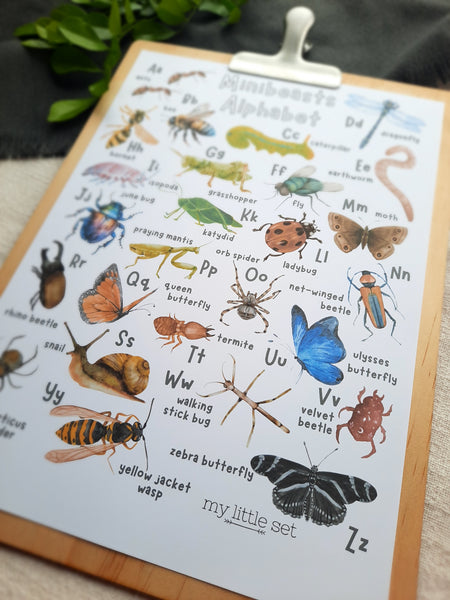 Minibeasts
Alphabet
Aa
ants
Bb
bee
Cc
caterpillar
Dd
dragonfly
Ee
earthworm
Ff
fly
Gg
grasshopper
Hh
hornet
Ii
isopods
Jj
june bug
Kk
katydid
Ll
ladybug
Mm
moth
Nn
net-winged
beetle
Oo
orb spider
Pp
praying mantis
Qq
queen
butterfly
Rr
rhino beetle
Ss
snail
Tt
termite
Uu
ulysses
butterfly
Vv
velvet
beetle
Ww
walking
stick bug
Yy
yellow jacket
wasp
Zz
zebra butterfly
my little set